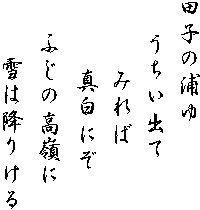 田子の浦ゆ
うちい出て
みれば
真白にぞ
ふじの高嶺に
雪は降りける